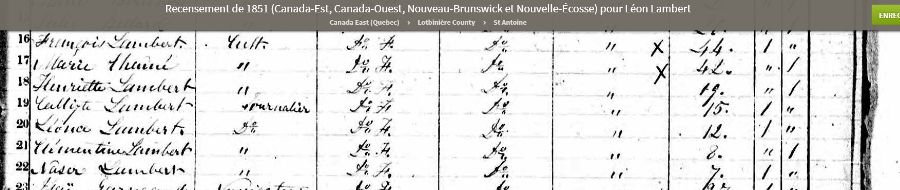 Recensement de 1851 (Canada-Est, Canada-Ouest, Nouveau-Brunswick et Nouvelle-Écosse) pour Léon Lambert
Canada East (Quebec) › Lotbinière County › St Antoine
ENREG
16 François Lambert Cult. Do. F. Do. " X 44. 1 "
17 Marie " Do. F. Do. " X 42. " 1
18 Henriette Lambert " Do. F. Do. " 19. " 1
19 Calixte Lambert Journalier Do. F. Do. " 15. 1 "
20 Léonce Lambert Do. Do. F. Do. " 12. 1 "
21 Clémentine Lambert " Do. F. Do. " 8. " 1
22 Naser Lambert " Do. F. Do. " 7. 1 "
23